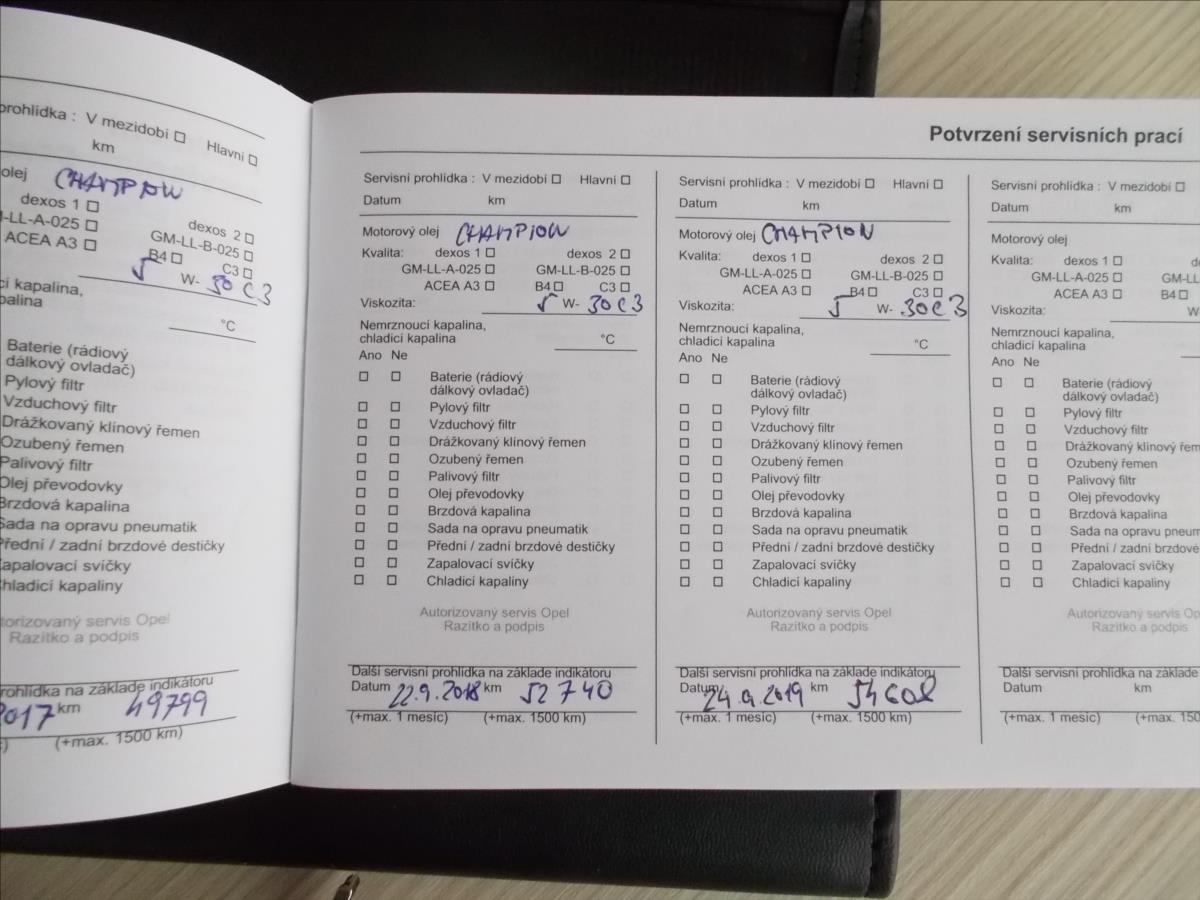 prohlídka : V mezidobí ☐ Hlavní ☐
km
olej CHAMPION
dexos 1 ☐ dexos 2 ☐
-LL-A-025 ☐ GM-LL-B-025 ☐
ACEA A3 ☐ B4 ☐ C3 ☐
5 W- 30 C3
cí kapalina,
kapalina
°C
Baterie (rádiový
dálkový ovladač)
Pylový filtr
Vzduchový filtr
Drážkovaný klínový řemen
Ozubený řemen
Palivový filtr
Olej převodovky
Brzdová kapalina
Sada na opravu pneumatik
Přední / zadní brzdové destičky
Zapalovací svíčky
Chladicí kapaliny
torizovaný servis Opel
Razítko a podpis
rohlídka na základe indikátoru
2017 km 49799
(+max. 1500 km)
Potvrzení servisních prací
Servisní prohlídka : V mezidobí ☐ Hlavní ☐
Datum km
Motorový olej CHAMPION
Kvalita: dexos 1 ☐ dexos 2 ☐
GM-LL-A-025 ☐ GM-LL-B-025 ☐
ACEA A3 ☐ B4 ☐ C3 ☐
Viskozita: 5 W- 30 C3
Nemrznoucí kapalina,
chladicí kapalina °C
Ano Ne
☐ ☐ Baterie (rádiový
dálkový ovladač)
☐ ☐ Pylový filtr
☐ ☐ Vzduchový filtr
☐ ☐ Drážkovaný klínový řemen
☐ ☐ Ozubený řemen
☐ ☐ Palivový filtr
☐ ☐ Olej převodovky
☐ ☐ Brzdová kapalina
☐ ☐ Sada na opravu pneumatik
☐ ☐ Přední / zadní brzdové destičky
☐ ☐ Zapalovací svíčky
☐ ☐ Chladicí kapaliny
Autorizovaný servis Opel
Razítko a podpis
Další servisní prohlídka na základe indikátoru
Datum 22.9.2018 km 52740
(+max. 1 mesíc) (+max. 1500 km)
Servisní prohlídka : V mezidobí ☐ Hlavní ☐
Datum km
Motorový olej CHAMPION
Kvalita: dexos 1 ☐ dexos 2 ☐
GM-LL-A-025 ☐ GM-LL-B-025 ☐
ACEA A3 ☐ B4 ☐ C3 ☐
Viskozita: 5 W- 30 C3
Nemrznoucí kapalina,
chladicí kapalina °C
Ano Ne
☐ ☐ Baterie (rádiový
dálkový ovladač)
☐ ☐ Pylový filtr
☐ ☐ Vzduchový filtr
☐ ☐ Drážkovaný klínový řemen
☐ ☐ Ozubený řemen
☐ ☐ Palivový filtr
☐ ☐ Olej převodovky
☐ ☐ Brzdová kapalina
☐ ☐ Sada na opravu pneumatik
☐ ☐ Přední / zadní brzdové destičky
☐ ☐ Zapalovací svíčky
☐ ☐ Chladicí kapaliny
Autorizovaný servis Opel
Razítko a podpis
Další servisní prohlídka na základe indikátoru
Datum 24.9.2019 km
(+max. 1 mesíc) (+max. 1500 km)
Servisní prohlídka : V mezidobí ☐
Datum km
Motorový olej
Kvalita: dexos 1 ☐
GM-LL-A-025 ☐ GM-LL
ACEA A3 ☐ B4 ☐
Viskozita: W
Nemrznoucí kapalina,
chladicí kapalina
Ano Ne
☐ ☐ Baterie (rádiový
dálkový ovladač)
☐ ☐ Pylový filtr
☐ ☐ Vzduchový filtr
☐ ☐ Drážkovaný klínový řem
☐ ☐ Ozubený řemen
☐ ☐ Palivový filtr
☐ ☐ Olej převodovky
☐ ☐ Brzdová kapalina
☐ ☐ Sada na opravu pneum
☐ ☐ Přední / zadní brzdové
☐ ☐ Zapalovací svíčky
☐ ☐ Chladicí kapaliny
Autorizovaný servis Op
Razítko a podpis
Další servisní prohlídka na základe
Datum km
(+max. 1 mesíc) (+max. 150